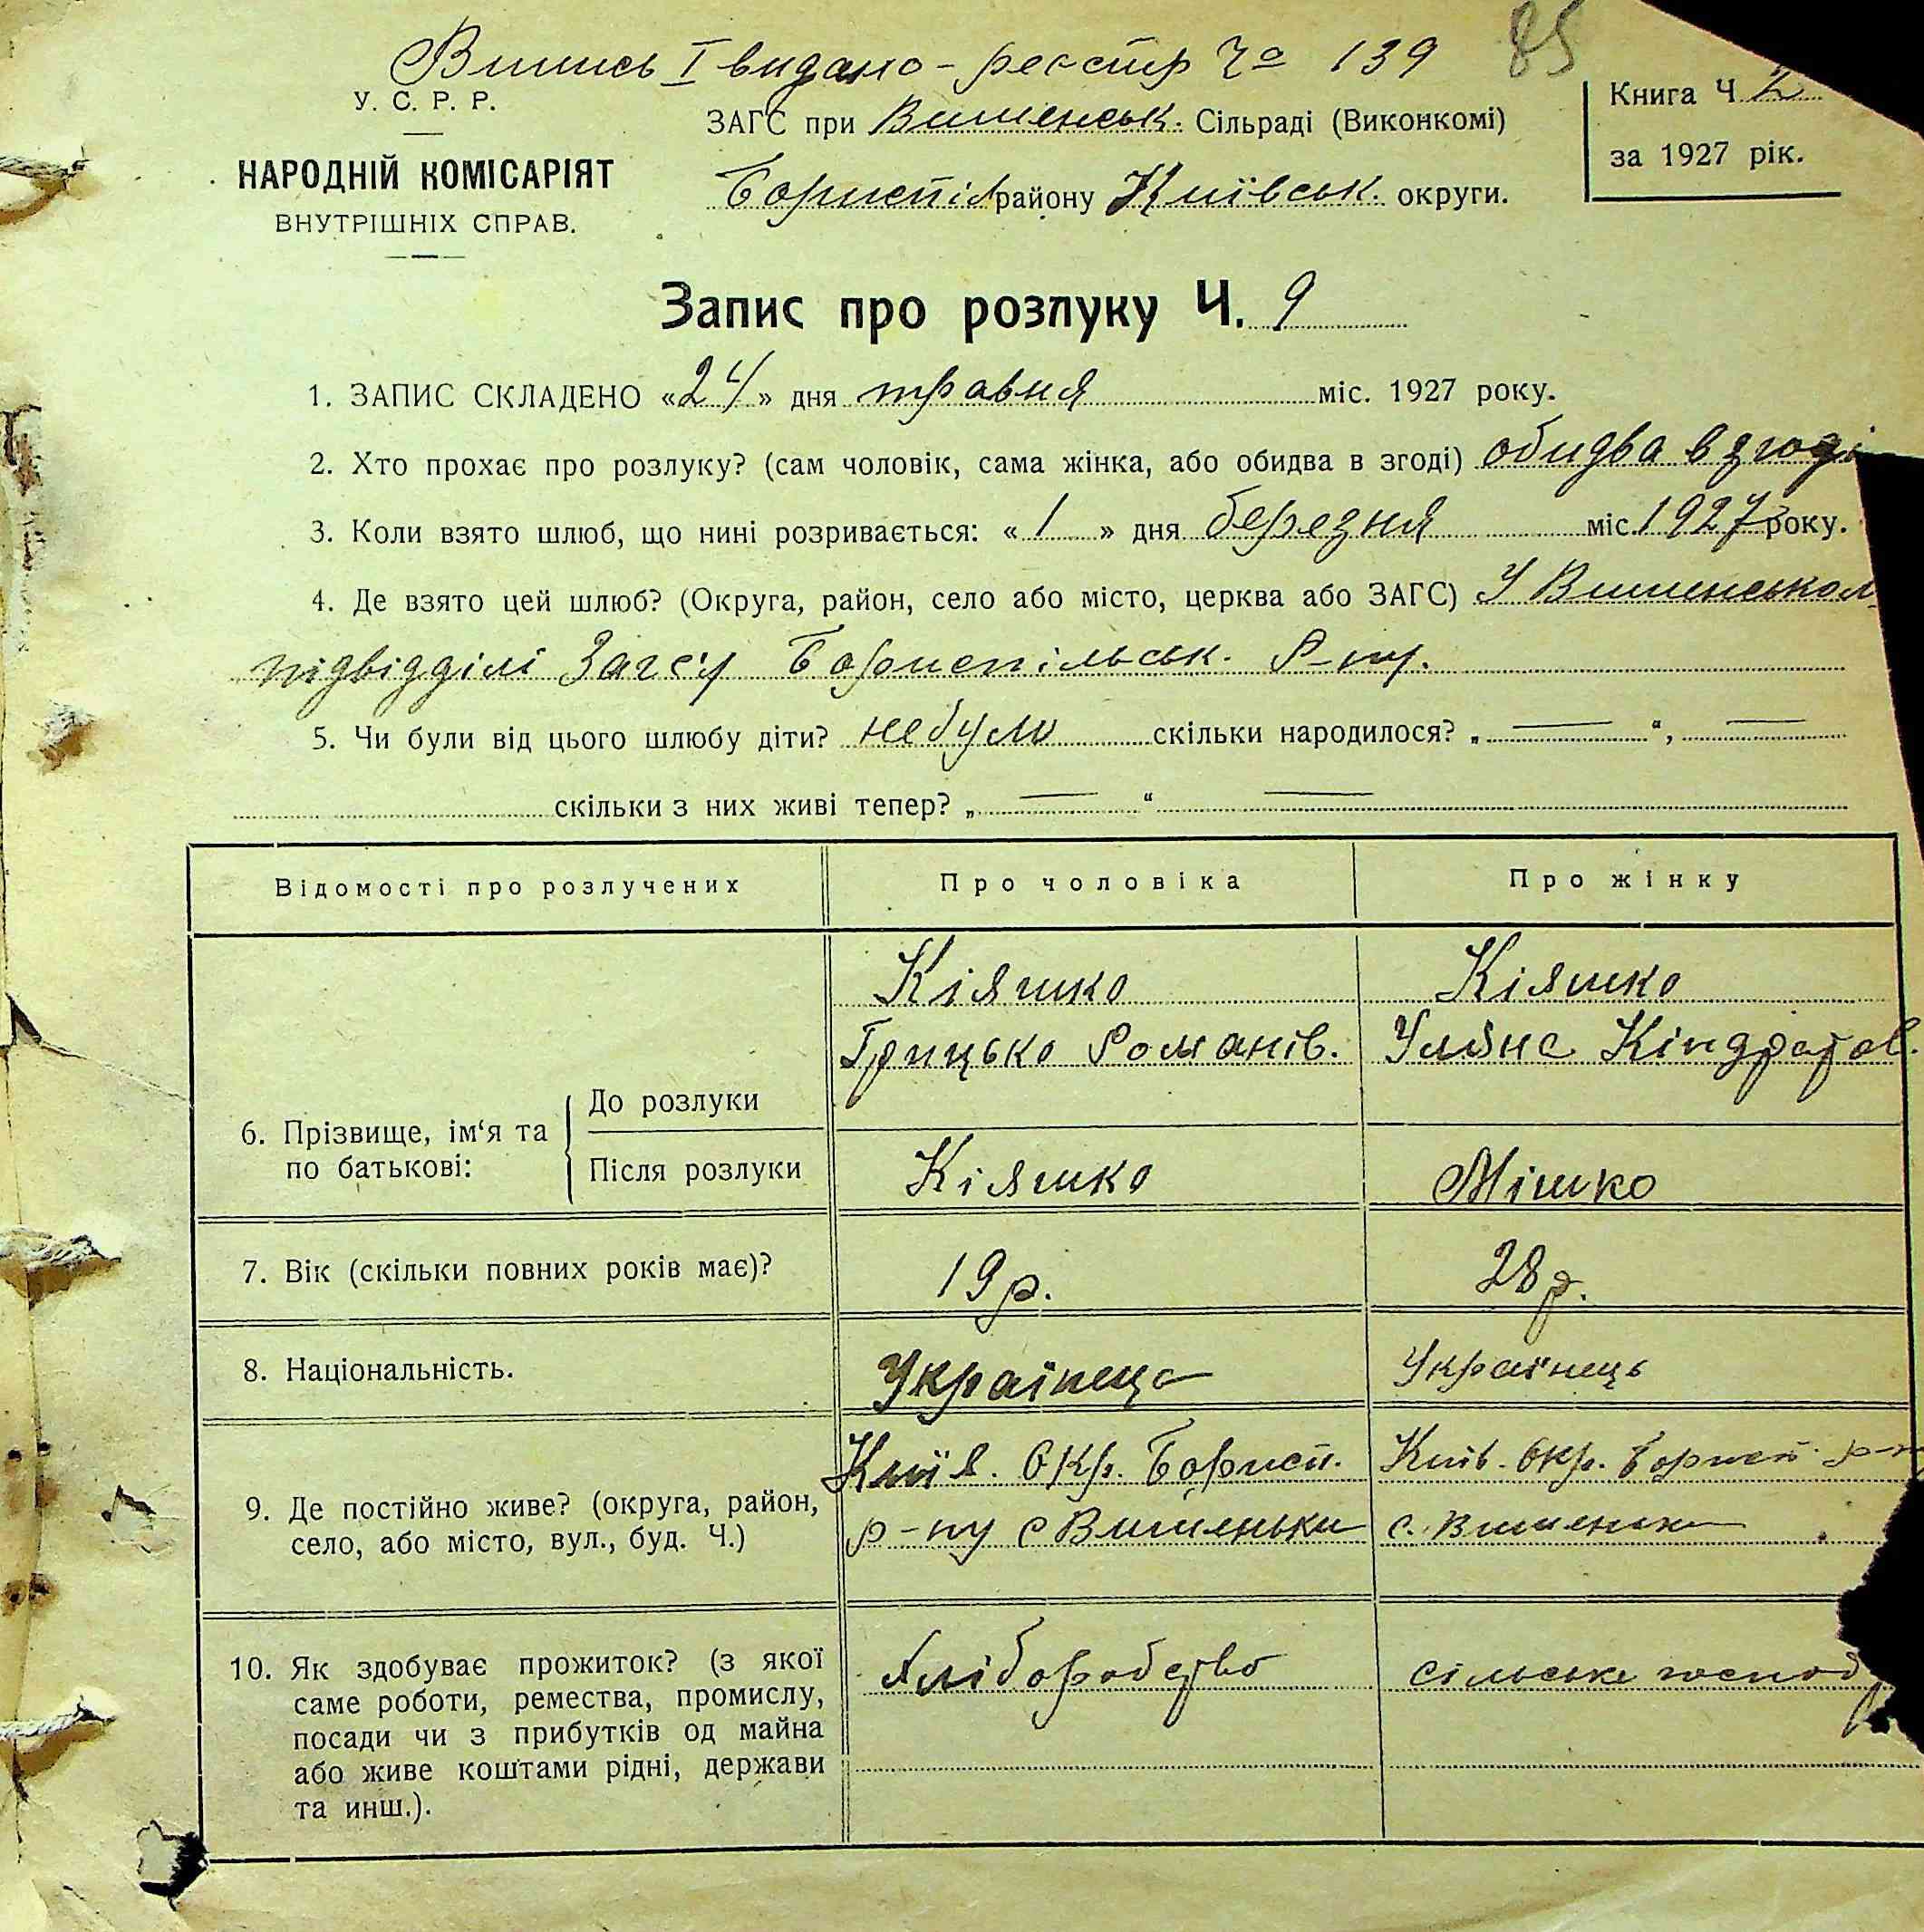 Випись І видано - реєстр Чо 139
85
У. С. Р. Р.
НАРОДНІЙ КОМІСАРІЯТ
ВНУТРІШНІХ СПРАВ.
ЗАГС при Вишенськ. Сільраді (Виконкомі)
Бориспіл району Київськ. округи.
Книга Ч 2
за 1927 рік.
Запис про розлуку Ч. 9
1. ЗАПИС СКЛАДЕНО «24» дня травня міс. 1927 року.
2. Хто прохає про розлуку? (сам чоловік, сама жінка, або обидва в згоді) обидва в згоді
3. Коли взято шлюб, що нині розривається: «1» дня березня міс. 1927 року.
4. Де взято цей шлюб? (Округа, район, село або місто, церква або ЗАГС) У Вишенськом
підвідділі Загс'у Бориспільськ. Р-ну.
5. Чи були від цього шлюбу діти? не було скільки народилося? „ — “, —
скільки з них живі тепер? „ — “ —
Відомості про розлучених
Про чоловіка
Про жінку
6. Прізвище, ім‘я та
по батькові:
До розлуки
Після розлуки
Кіяшко
Грицько Романів.
Кіяшко
Уляна Кіндратов.
Кіяшко
Мішко
7. Вік (скільки повних років має)?
19 р.
28 р.
8. Національність.
Українець
Українець
9. Де постійно живе? (округа, район,
село, або місто, вул., буд. Ч.)
Київ. Окр. Борисп.
р-ну с Вишеньки
Київ. Окр. Борисп. р-н
с. Вишеньки
10. Як здобуває прожиток? (з якої
саме роботи, ремества, промислу,
посади чи з прибутків од майна
або живе коштами рідні, держави
та инш.).
Хліборобство
сільське господ